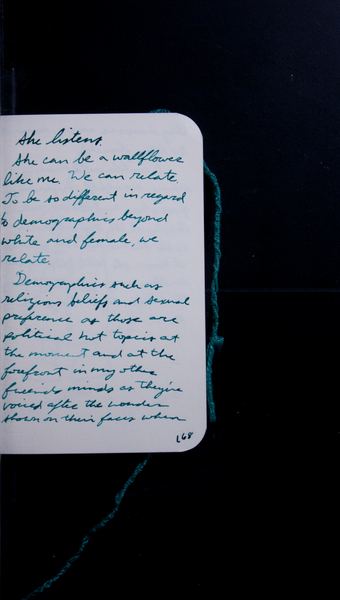 She listens.
She can be a wallflower
like me. We can relate.
To be so different in regard
to demographics beyond
white and female, we
relate.
Demographics such as
religious beliefs and sexual
preference as those are
political hot topics at
the moment and at the
forefront in my other
friends minds as they're
voiced after the wonder
shown on their faces when
168